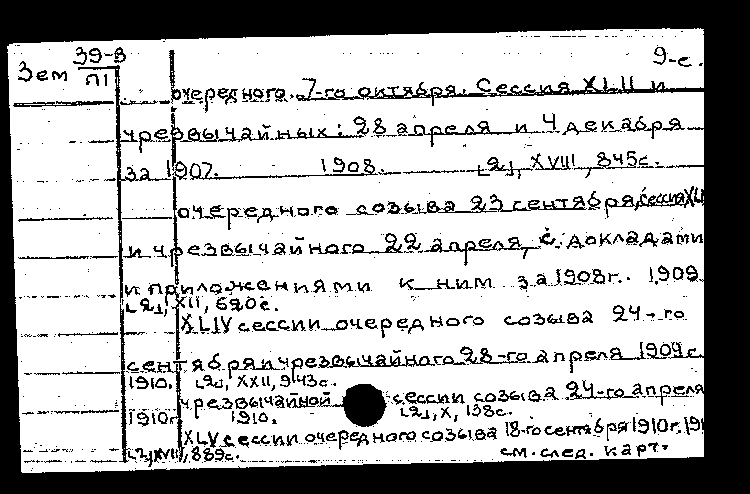 Зем 39-В 9-е.
П1
очередного. 7-го октября. Сессия XLII и
чрезвычайных: 28 апреля и 4 декабря
за 1907. 1908. [2], XVIII, 845с.
очередного созыва 23 сентября, сессия
и чрезвычайного 22 апреля, с докладами
и приложениями к ним за 1908г. 1909
[2], XII, 620с.
XLIV сессии очередного созыва 24-го
сентября и чрезвычайного 28-го апреля
1910. [2], XXII, 943с.
чрезвычайной сессии созыва 24-го апреля
1910г. 1910. [2], X, 138с.
XLV сессии очередного созыва 18-го сентября 1910г.
889с. см. след. карт.